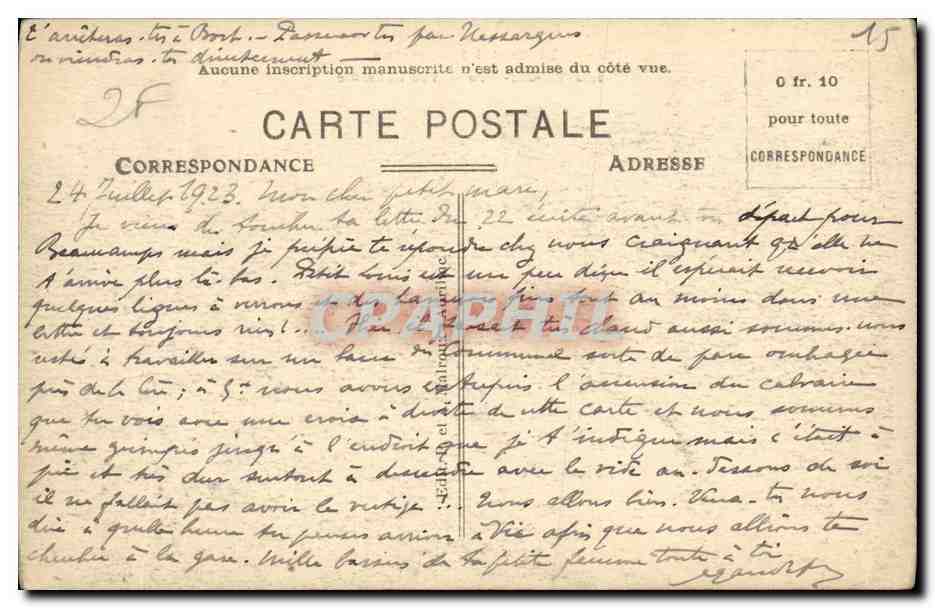 t'arrêteras-tu à Bort. — Passeras tu par Neussargues
ou viendras-tu directement —
15
Aucune inscription manuscrite n'est admise du côté vue.
2F
0 fr. 10
pour toute
CORRESPONDANCE
CARTE POSTALE
CORRESPONDANCE
ADRESSE
24 Juillet 1923. Mon cher petit mari,
Je viens de toucher ta lettre du 22 écrite avant ton départ pour
Beauchamps mais je préfère te répondre chez nous craignant qu'elle ne
t'arrive plus là-bas. Petit Louis est un peu déçu il espérait recevoir
quelques lignes à verrons et des fois tout au moins dans une
lettre et toujours rien!... Hier il faisait très chaud aussi sommes-nous
restés à travailler sur un banc du Communal sorte de parc ombragé
près de la Cère; à 5h nous avons entrepris l'ascension du calvaire
que tu vois avec une croix à droite de cette carte et nous sommes
même grimpés jusqu'à l'endroit que je t'indique mais c'était à
pic et très dur surtout à descendre avec le vide au-dessous de soi
il ne fallait pas avoir le vertige!.. Nous allons bien. Veux-tu nous
dire à quelle heure tu penses arriver à Vic afin que nous allions te
chercher à la gare. Mille baisers de ta petite femme toute à toi
CPAPHIL